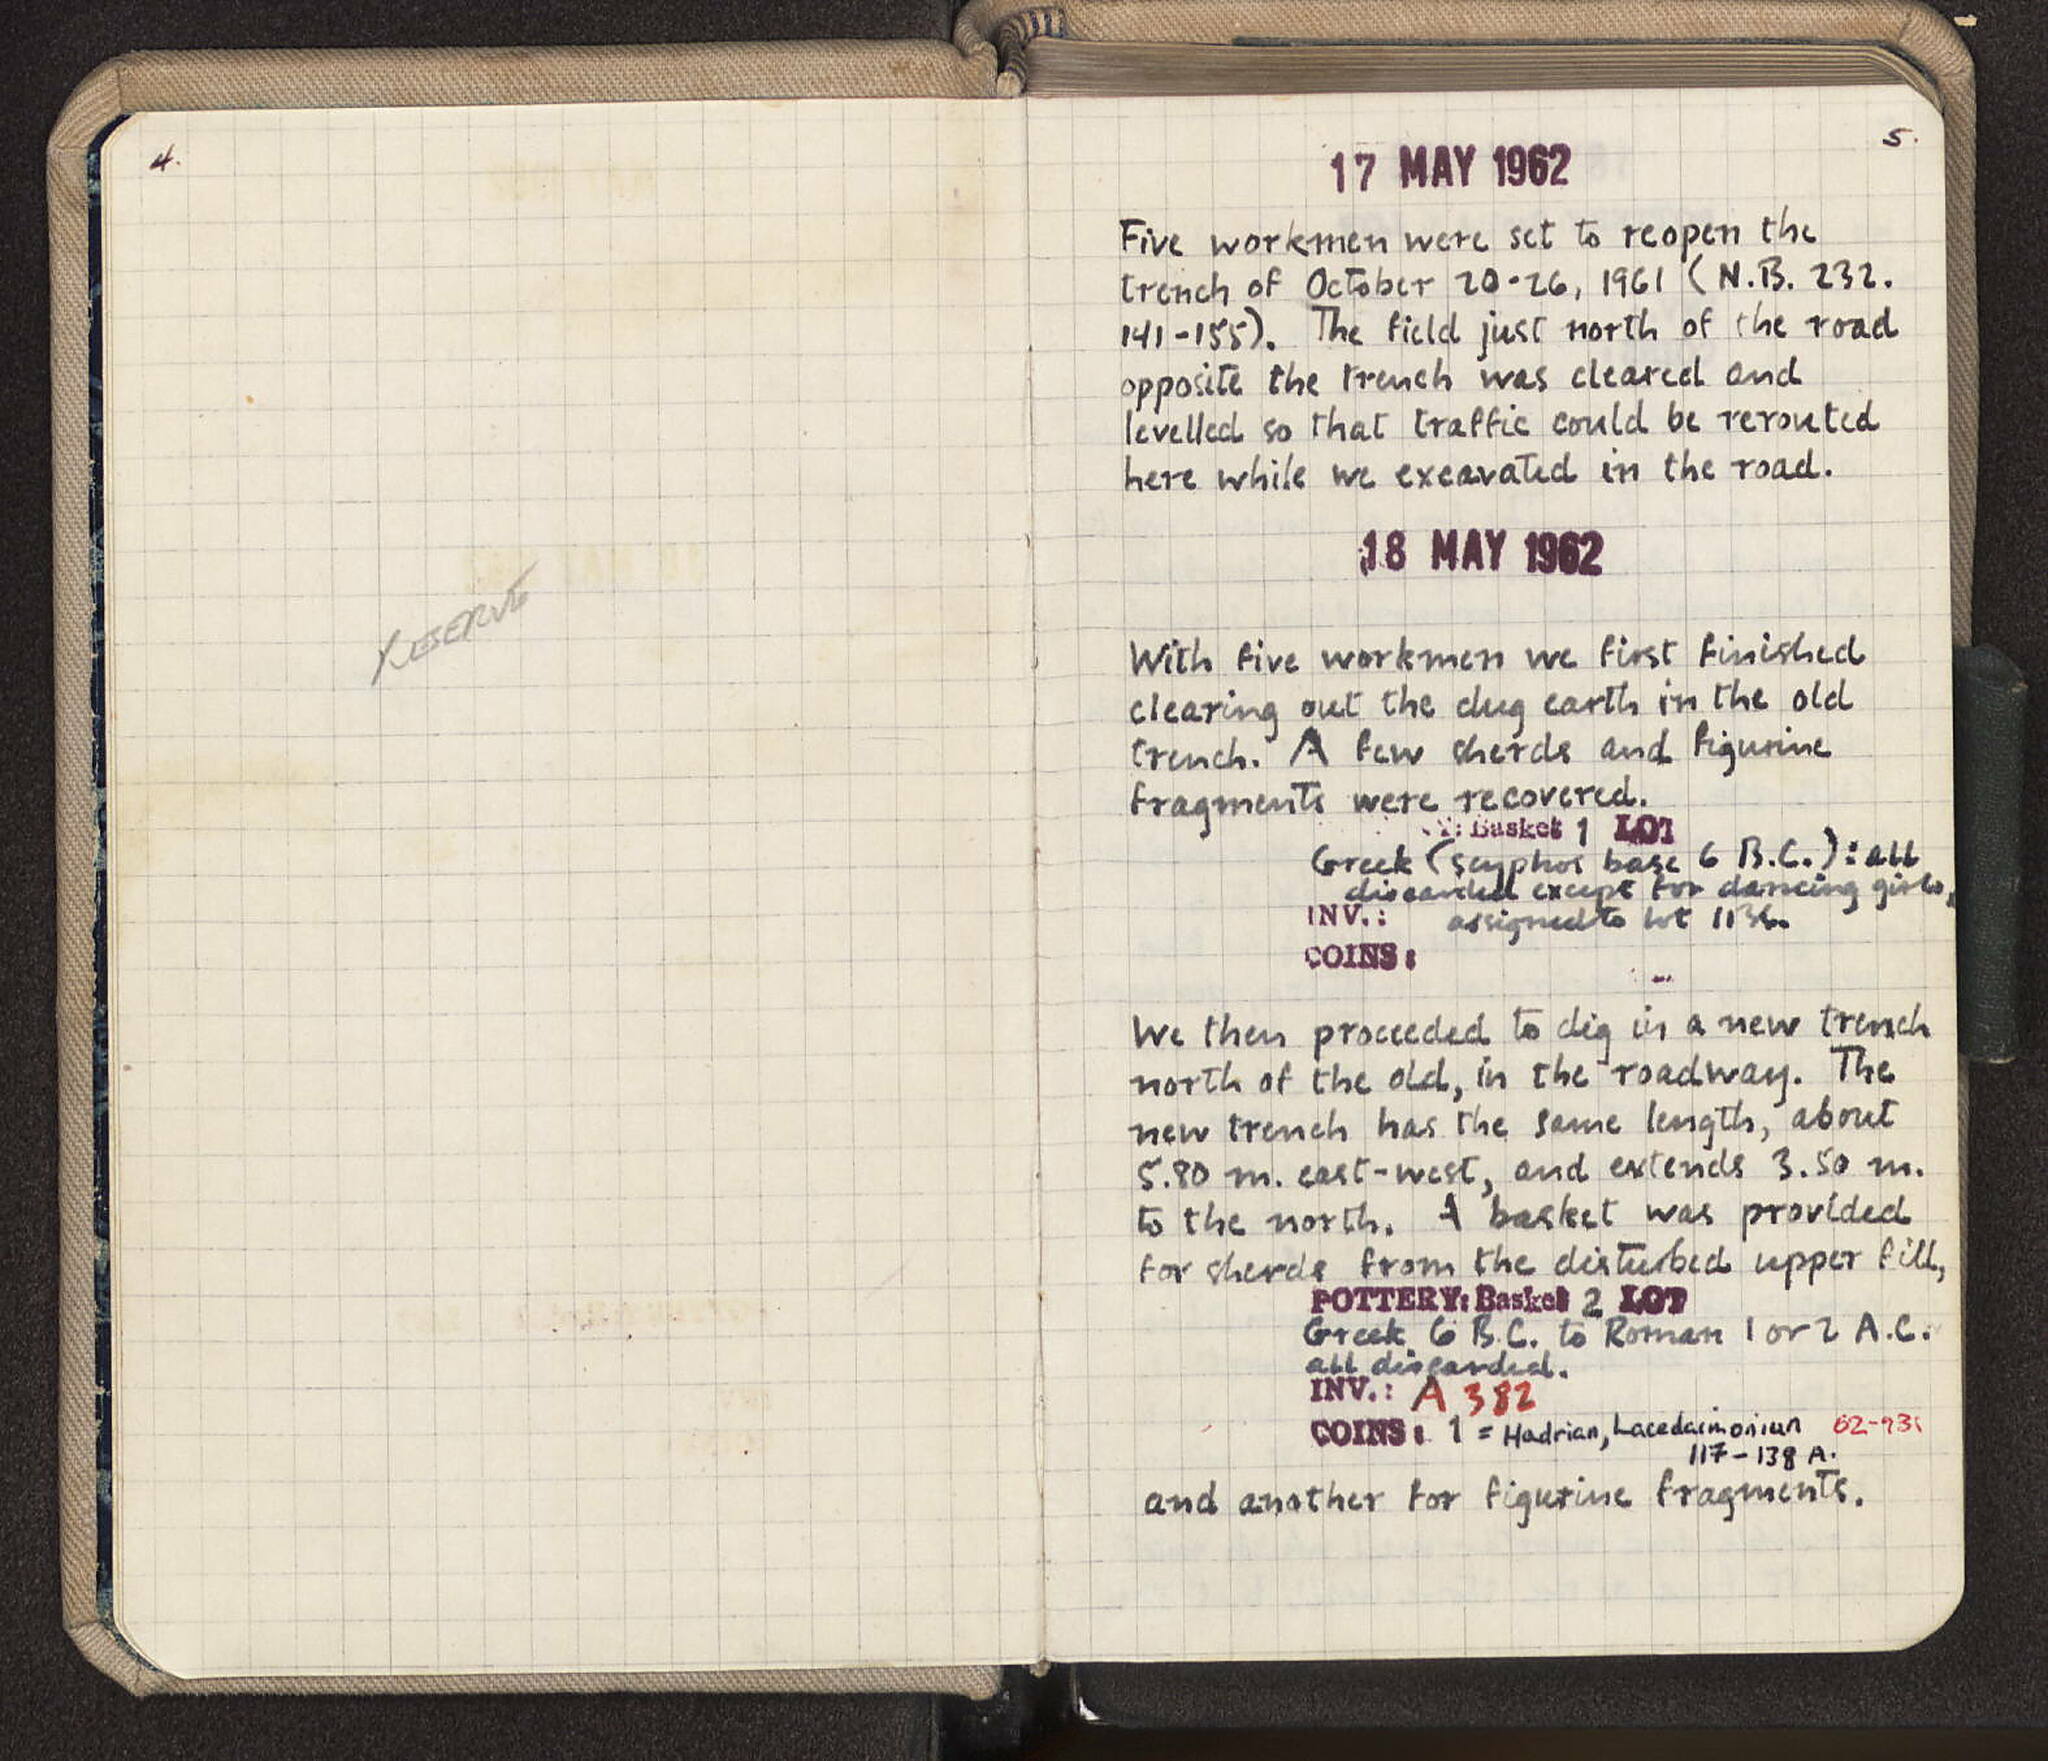 4.
RESERVE
5.
17 MAY 1962
Five workmen were set to reopen the
trench of October 20-26, 1961 (N.B. 232.
141-155). The field just north of the road
opposite the trench was cleared and
levelled so that traffic could be rerouted
here while we excavated in the road.
18 MAY 1962
With five workmen we first finished
clearing out the dug earth in the old
trench. A few sherds and figurine
fragments were recovered.
Y: Basket 1 LOT
Greek (scyphos base 6 B.C.): all
discarded except for dancing girls,
INV.: assigned to lot
COINS:
We then proceeded to dig in a new trench
north of the old, in the roadway. The
new trench has the same length, about
5.80 m. east-west, and extends 3.50 m.
to the north. A basket was provided
for sherds from the disturbed upper fill,
POTTERY: Basket 2 LOT
Greek 6 B.C. to Roman 1 or 2 A.C.
all discarded.
INV.: A 382
COINS: 1 = Hadrian, Lacedaimonian
117-138 A.
and another for figurine fragments.